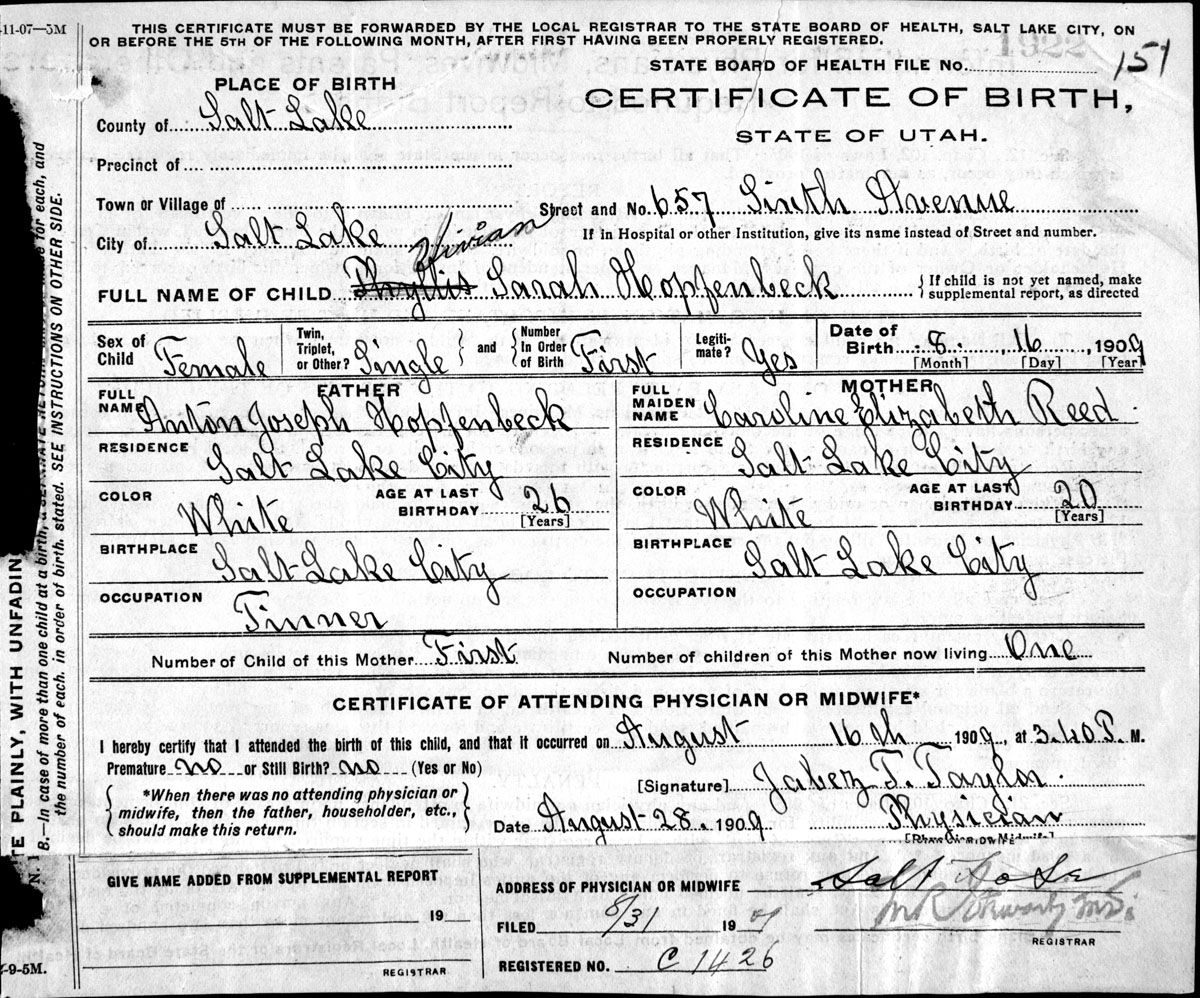 -11-07—5M
THIS CERTIFICATE MUST BE FORWARDED BY THE LOCAL REGISTRAR TO THE STATE BOARD OF HEALTH, SALT LAKE CITY, ON
OR BEFORE THE 5TH OF THE FOLLOWING MONTH, AFTER FIRST HAVING BEEN PROPERLY REGISTERED.
STATE BOARD OF HEALTH FILE No. 151
PLACE OF BIRTH
CERTIFICATE OF BIRTH,
STATE OF UTAH.
County of Salt Lake
Precinct of
Town or Village of
Street and No. 657 Sixth Avenue
City of Salt Lake
If in Hospital or other Institution, give its name instead of Street and number.
Vivian
FULL NAME OF CHILD Phyllis Sarah Hopfenbeck { If child is not yet named, make
supplemental report, as directed
Sex of Child Female Twin, Triplet, or Other? Single and Number In Order of Birth First Legiti-mate? Yes Date of Birth 8 16, 1909
[Month] [Day] [Year]
FATHER
MOTHER
FULL NAME Anton Joseph Hopfenbeck
FULL MAIDEN NAME Caroline Elizabeth Reed
RESIDENCE Salt Lake City
RESIDENCE Salt Lake City
COLOR White AGE AT LAST BIRTHDAY 26 [Years]
COLOR White AGE AT LAST BIRTHDAY 20 [Years]
BIRTHPLACE Salt Lake City
BIRTHPLACE Salt Lake City
OCCUPATION Tinner
OCCUPATION
Number of Child of this Mother First Number of children of this Mother now living One
CERTIFICATE OF ATTENDING PHYSICIAN OR MIDWIFE*
I hereby certify that I attended the birth of this child, and that it occurred on August 16th 1909, at 3.40 P. M.
Premature no or Still Birth? no (Yes or No)
[Signature] Jabez T. Taylor.
*When there was no attending physician or
midwife, then the father, householder, etc.,
should make this return.
Date August 28. 1909.
Physician
GIVE NAME ADDED FROM SUPPLEMENTAL REPORT
19
REGISTRAR
ADDRESS OF PHYSICIAN OR MIDWIFE Salt
FILED 8/31 190
REGISTRAR
REGISTERED NO. C 1426
-9-5M.
TE PLAINLY, WITH UNFADIN
N. B.—In case of more than one child at a birth, a SEPARATE RETURN for each, and
the number of each, in order of birth, stated. SEE INSTRUCTIONS ON OTHER SIDE.